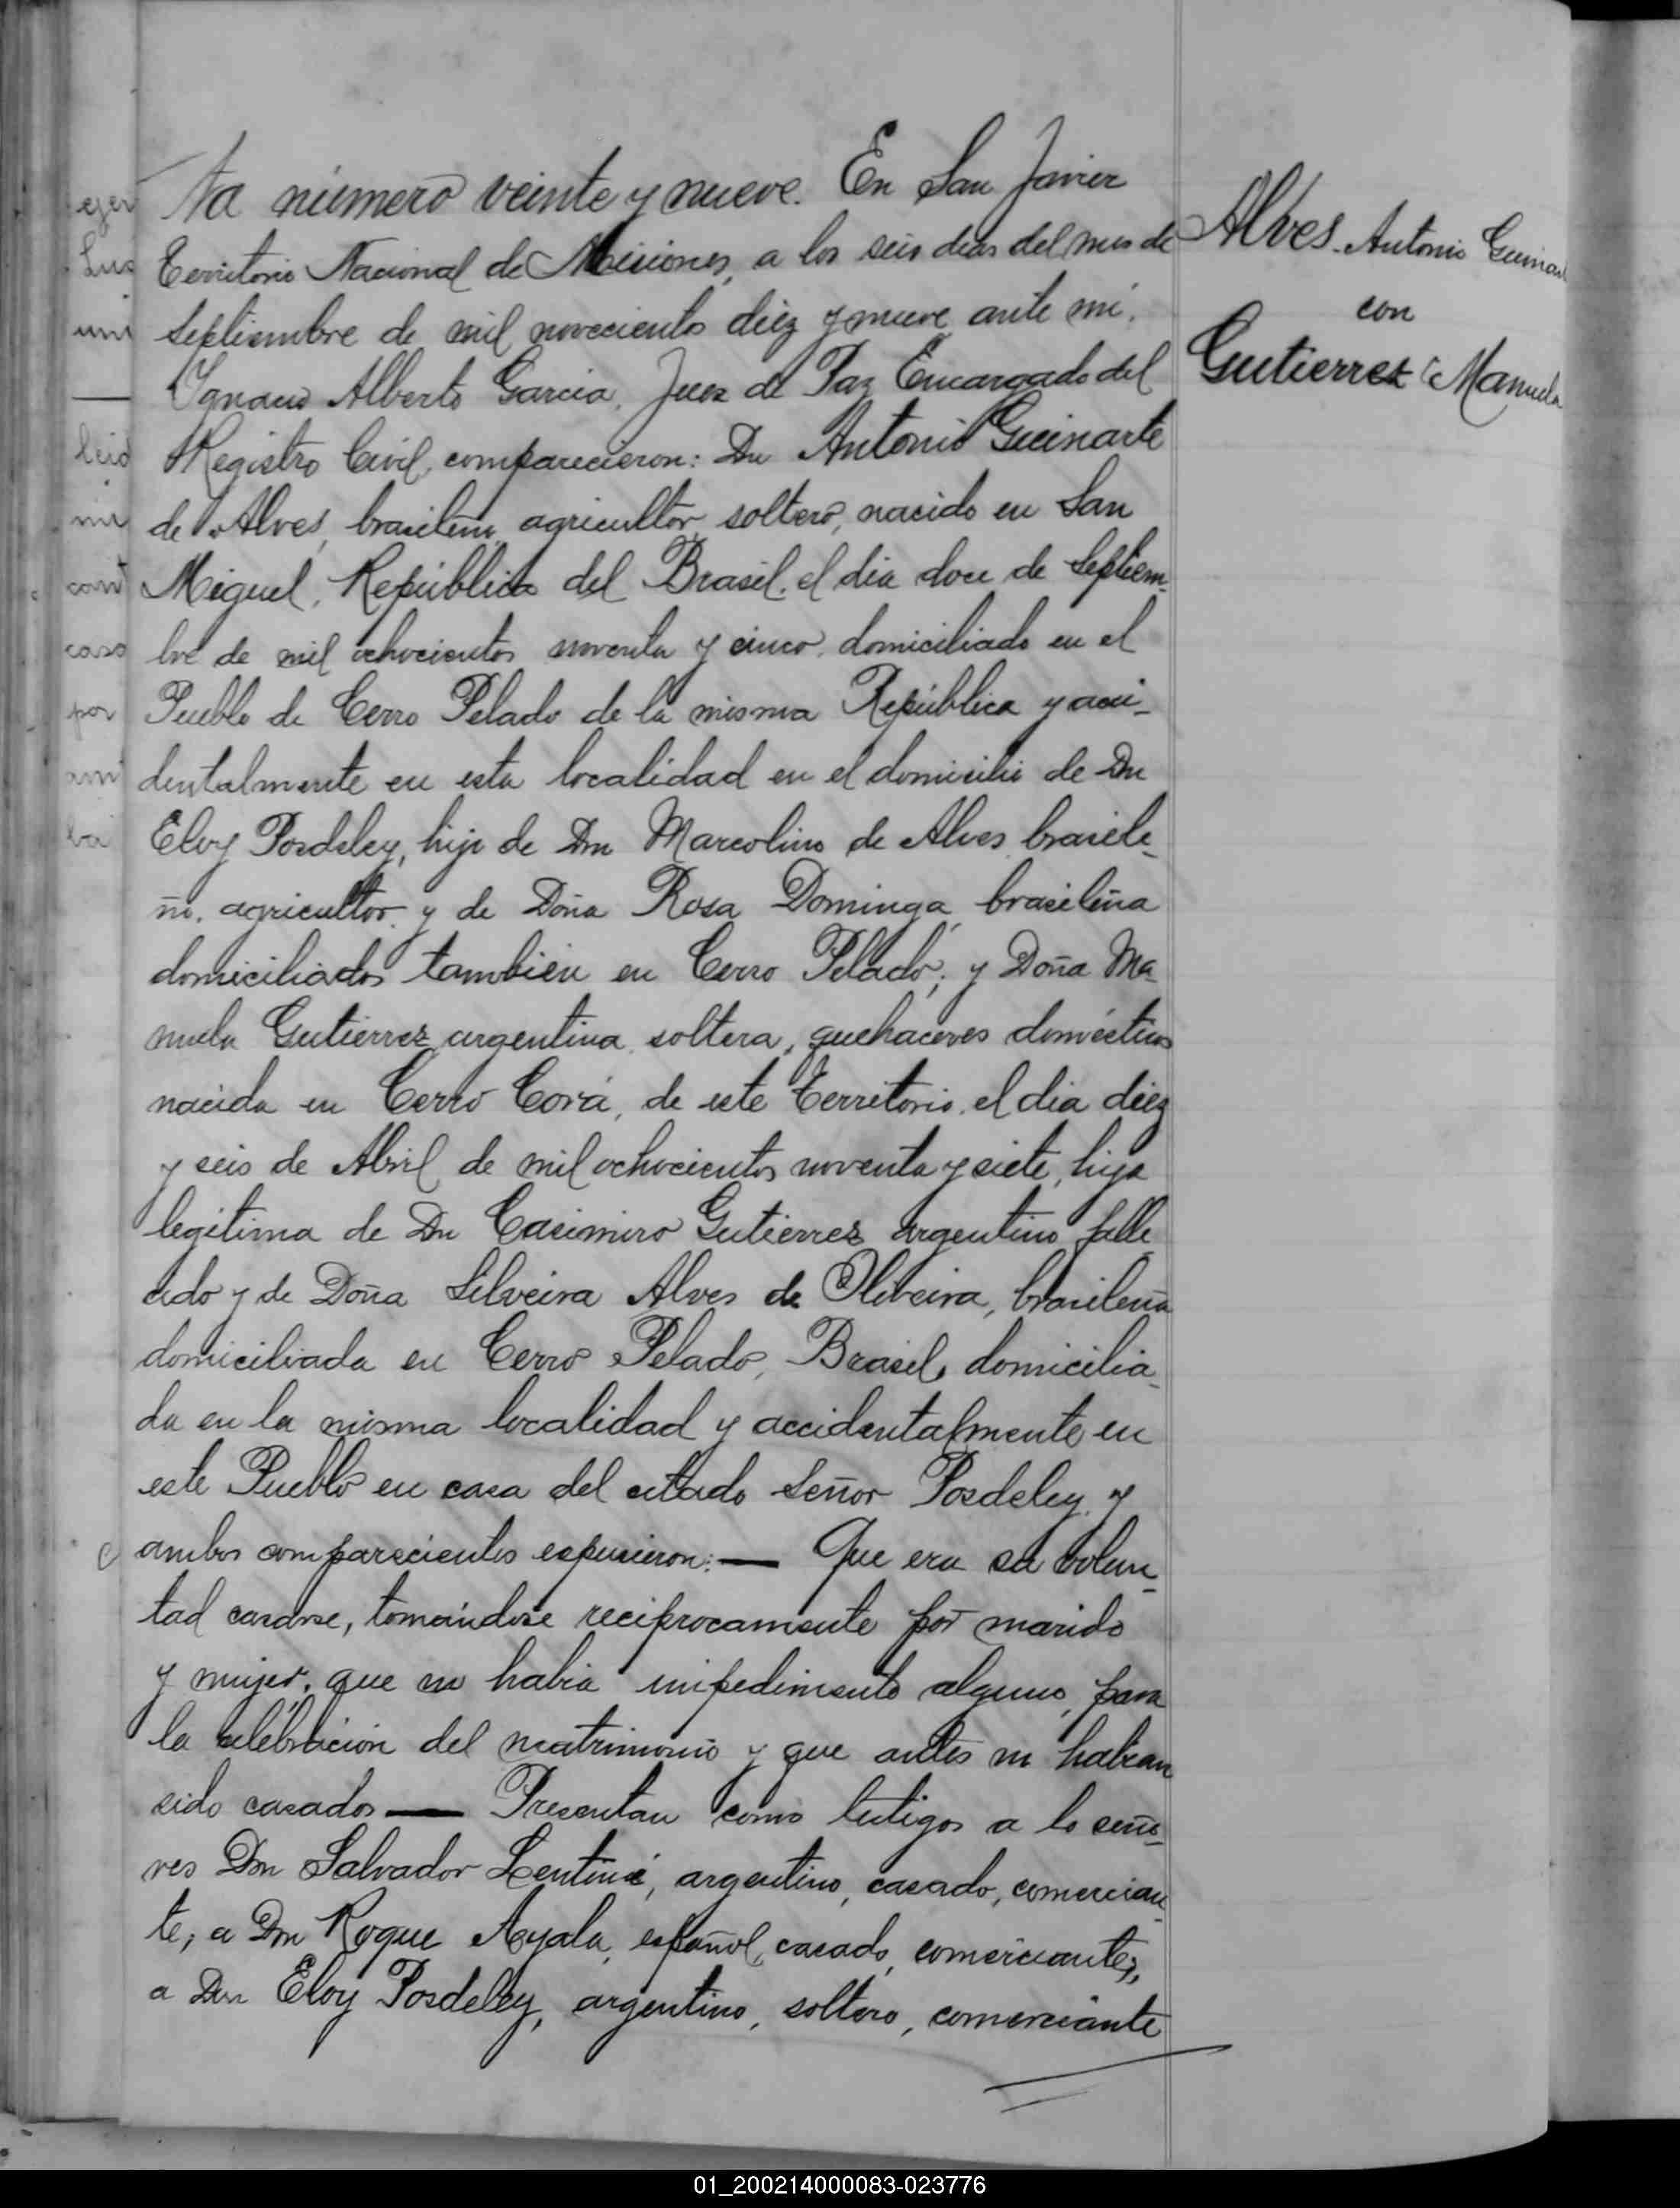 Alves Antonio Guinar
con
Gutierrez Manuela
Acta número veinte y nueve. En San Javier
Territorio Nacional de Misiones, a los seis dias del mes de
Septiembre de mil novecientos diez y nueve ante mi,
Ignacio Alberto Garcia, Juez de Paz Encargado del
Registro Civil, comparecieron: Dn Antonio Guinarte
de Alves, brasileño, agricultor, soltero, nacido en San
Miguel, República del Brasil, el dia doce de Septiem-
bre de mil ochocientos noventa y cinco, domiciliado en el
Pueblo de Cerro Pelado de la misma República y acci-
dentalmente en esta localidad en el domicilio de Dn
Eloy Posdeley, hijo de Dn Marcolino de Alves, brasile-
ño, agricultor y de Doña Rosa Dominga, brasileña
domiciliados tambien en Cerro Pelado; y Doña Ma-
nuela Gutierrez, argentina, soltera, quehaceres domésticos
nacida en Cerro Corá, de este Territorio, el dia diez
y seis de Abril de mil ochocientos noventa y siete, hija
legitima de Dn Casimiro Gutierrez argentino falle-
cido y de Doña Silveira Alves de Oliveira, brasileña
domiciliada en Cerro Pelado, Brasil, domicilia-
da en la misma localidad y accidentalmente en
este Pueblo en casa del citado Señor Posdeley, y
ambos comparecientes espusieron: — Que era su volun-
tad casarse, tomándose reciprocamente por marido
y mujer, que no habia impedimento alguno, para
la celebración del matrimonio y que antes no habian
sido casados — Presentan como testigos a lo seño-
res Dn Salvador Lentini, argentino, casado, comercian-
te; a Dn Roque Ayala, español, casado, comerciante;
a Dn Eloy Posdeley, argentino, soltero, comerciante
01_200214000083-023776